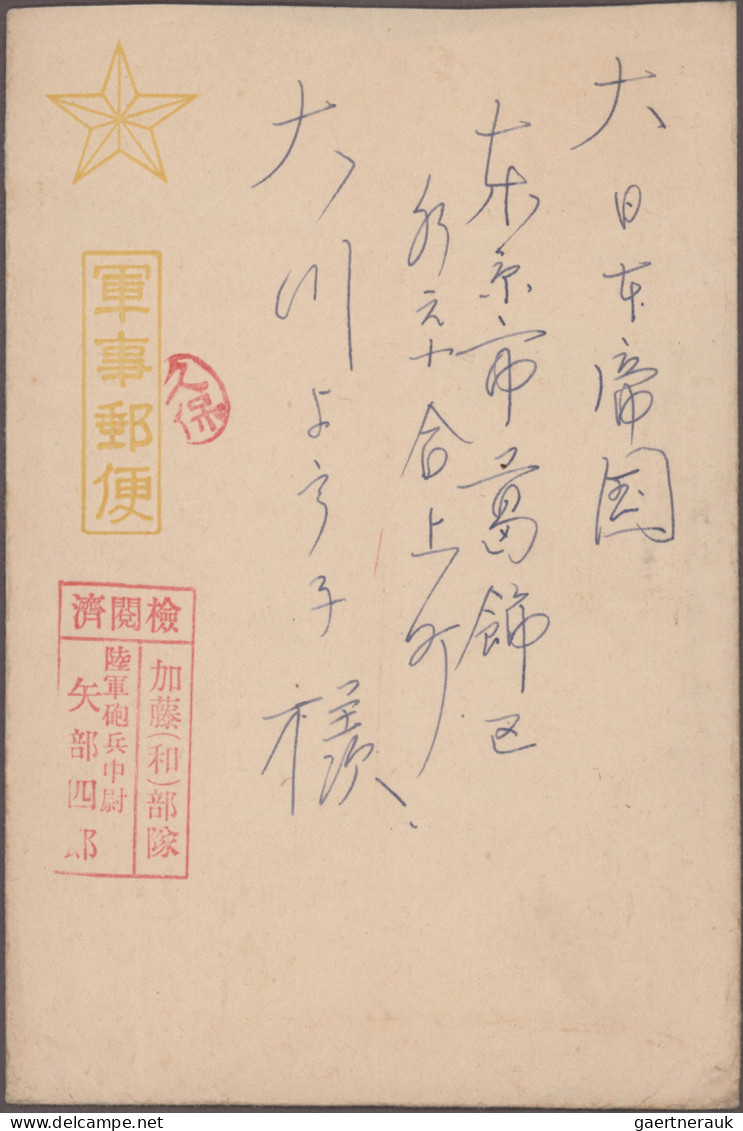 大日本帝国
東京市葛飾区
水元小合上町
大川よう子様
軍事郵便
久保
検閲済
加藤(和)部隊
陸軍砲兵中尉
矢部四郎
gaertnerauk @ www.delcampe.net